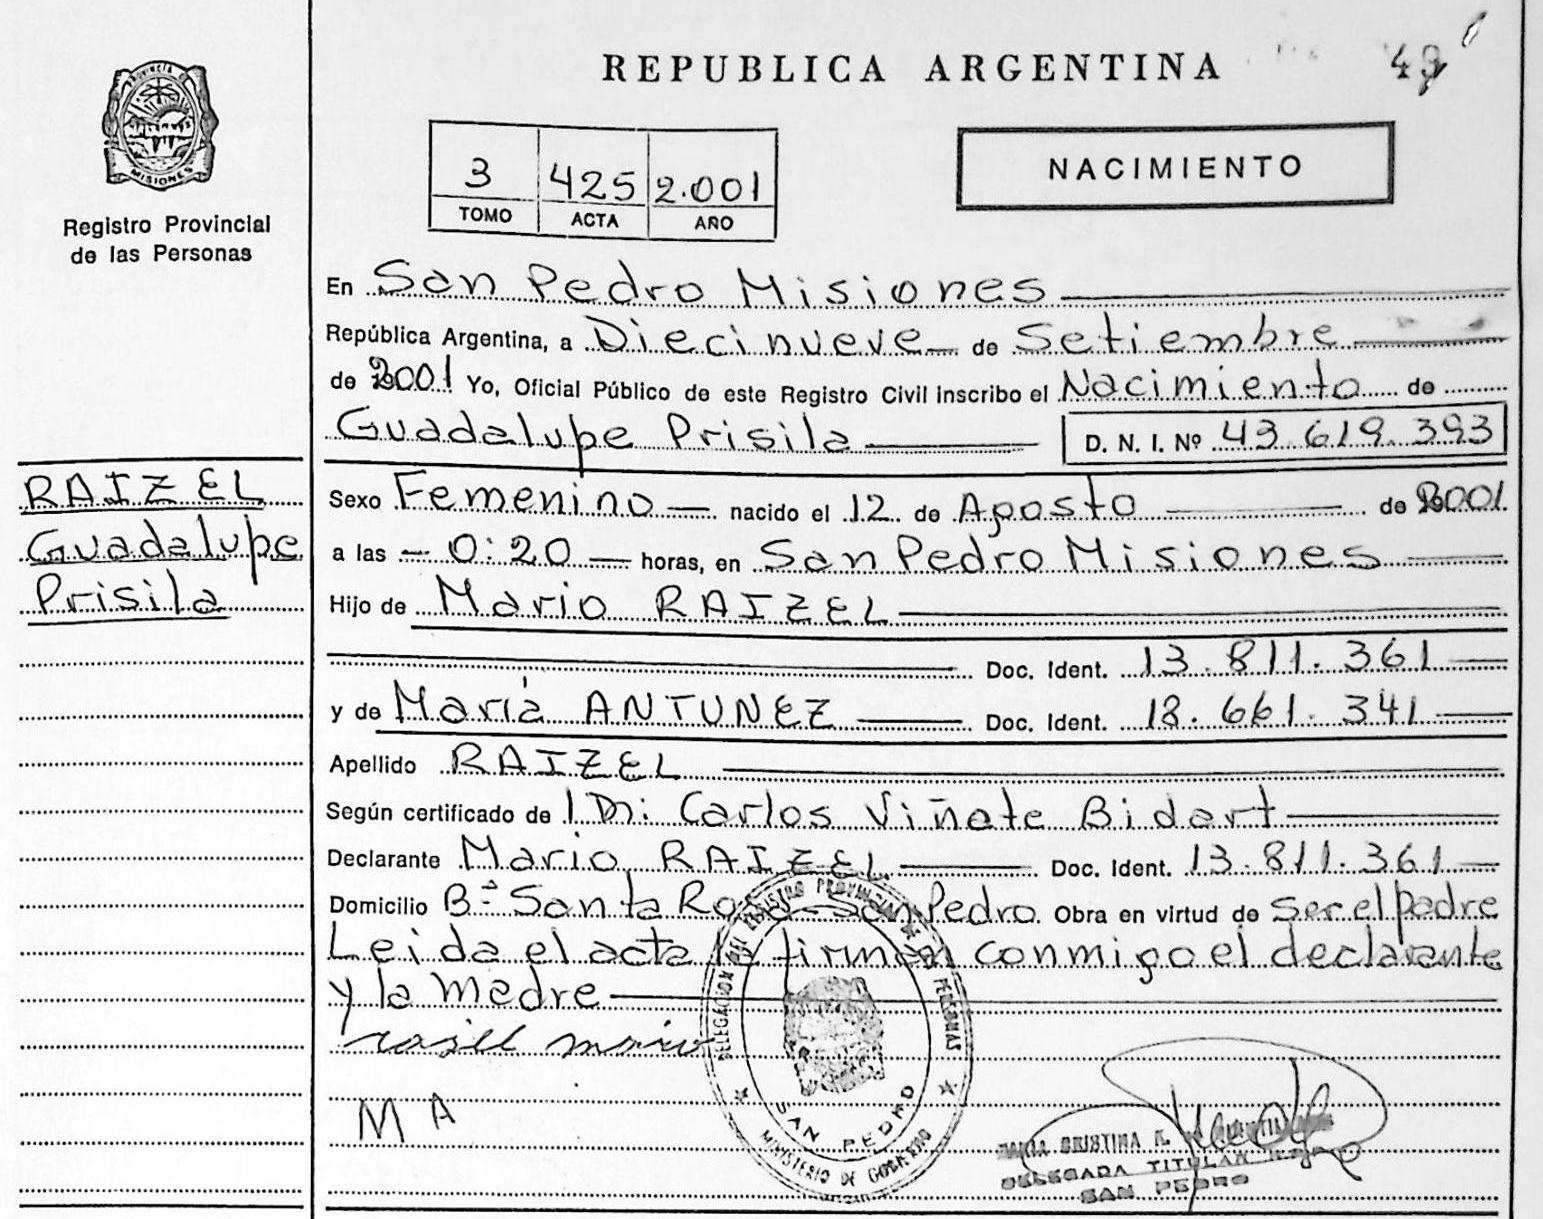 REPUBLICA ARGENTINA
49
PROVINCIA DE
MISIONES
Registro Provincial
de las Personas
3 425 2.001
TOMO ACTA AÑO
NACIMIENTO
En San Pedro Misiones
República Argentina, a Diecinueve de Setiembre
de 2001 Yo, Oficial Público de este Registro Civil inscribo el Nacimiento de
Guadalupe Prisila D. N. I. Nº 43.619.393
RAIZEL
Guadalupe
Prisila
Sexo Femenino nacido el 12 de Agosto de 2001
a las 0:20 horas, en San Pedro Misiones
Hijo de Mario RAIZEL
Doc. Ident. 13.811.361
y de María ANTUNEZ Doc. Ident. 18.661.341
Apellido RAIZEL
Según certificado de l Dr: Carlos Viñate Bidart
Declarante Mario RAIZEL Doc. Ident. 13.811.361
Domicilio Bº Santa Rosa - San Pedro. Obra en virtud de ser el padre
Leida el acta la firman conmigo el declarante
y la madre
rasel mario
M A
DELEGACION DEL REGISTRO PROVINCIAL DE LAS PERSONAS
SAN PEDRO
MINISTERIO DE GOBIERNO
MARIA CRISTINA R.
DELEGADA TITULAR
SAN PEDRO